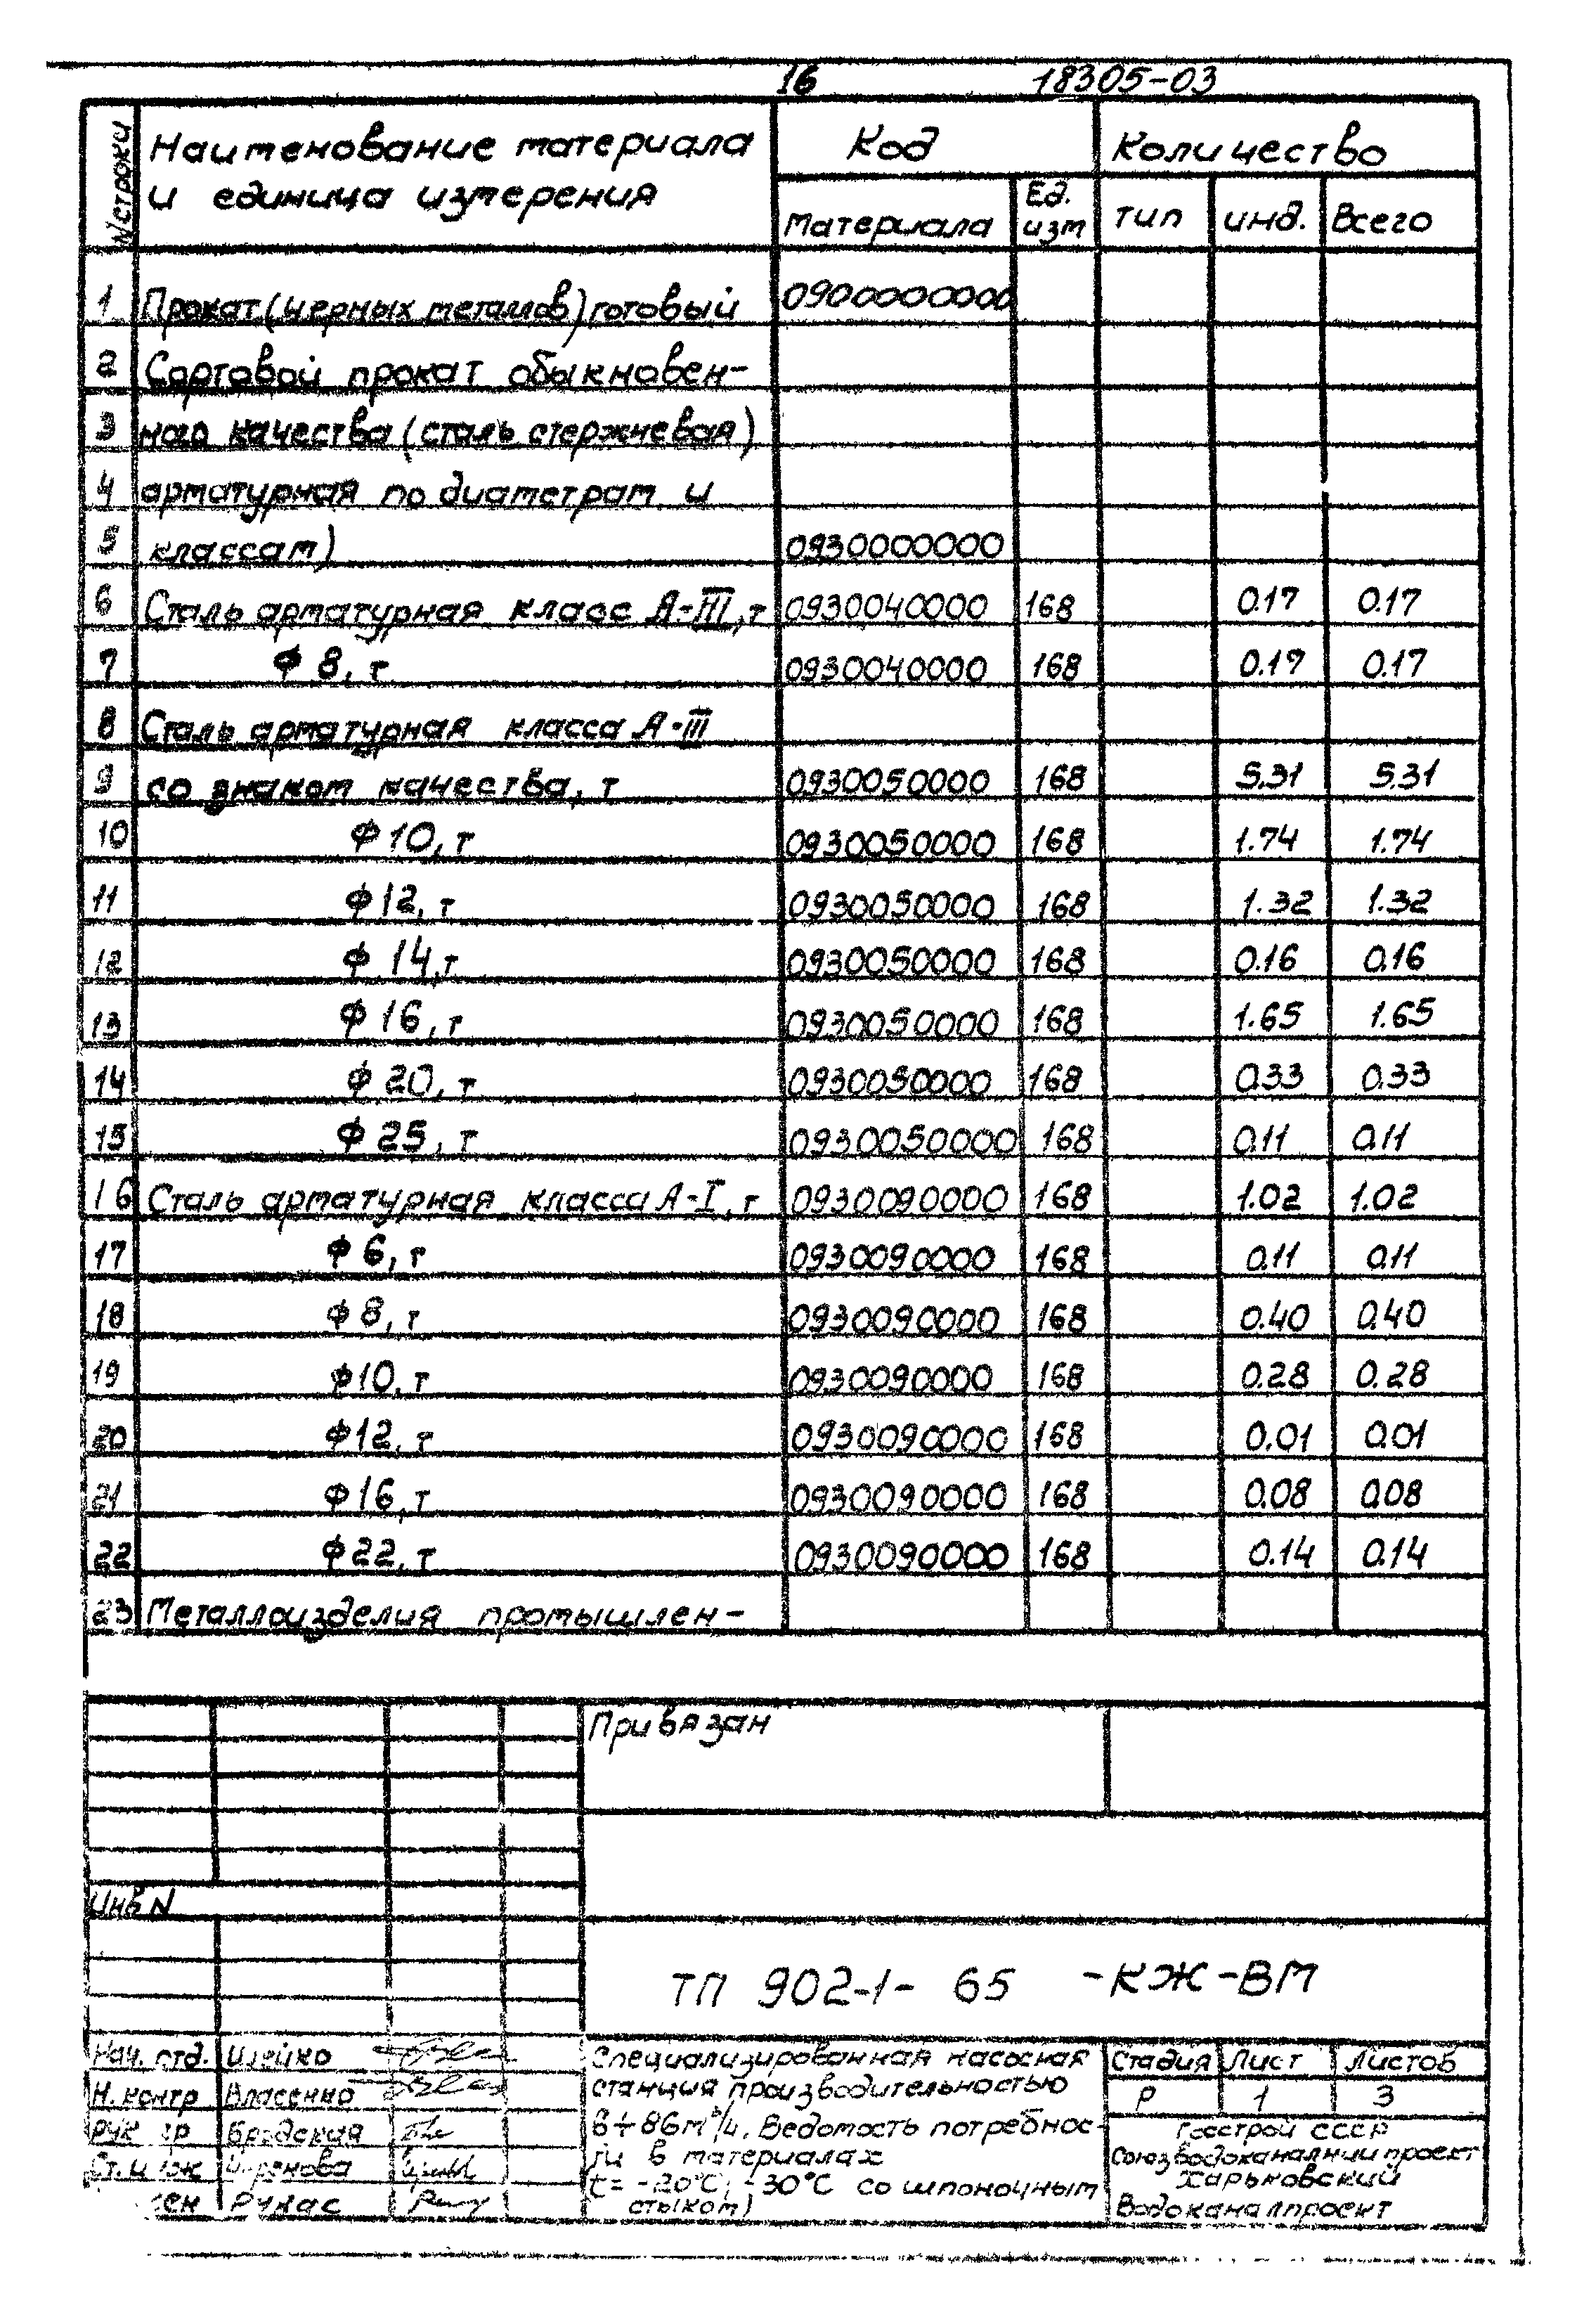 16 18305-03
N строки Наименование материала и единица измерения Код Количество
Материала Ед. изм тип инд. Всего
1 Прокат (черных металлов) готовый 0900000000
2 Сортовой прокат обыкновен-
3 ного качества (сталь стержневая)
4 арматурная по диаметрам и
5 классам) 0930000000
6 Сталь арматурная класс А-III, т 0930040000 168 0.17 0.17
7 Ф 8, т 0930040000 168 0.17 0.17
8 Сталь арматурная класса А-III
9 со знаком качества, т 0930050000 168 5.31 5.31
10 Ф 10, т 0930050000 168 1.74 1.74
11 Ф 12, т 0930050000 168 1.32 1.32
12 Ф 14, т 0930050000 168 0.16 0.16
13 Ф 16, т 0930050000 168 1.65 1.65
14 Ф 20, т 0930050000 168 0.33 0.33
15 Ф 25, т 0930050000 168 0.11 0.11
16 Сталь арматурная класса А-I, т 0930090000 168 1.02 1.02
17 Ф 6, т 0930090000 168 0.11 0.11
18 Ф 8, т 0930090000 168 0.40 0.40
19 Ф 10, т 0930090000 168 0.28 0.28
20 Ф 12, т 0930090000 168 0.01 0.01
21 Ф 16, т 0930090000 168 0.08 0.08
22 Ф 22, т 0930090000 168 0.14 0.14
23 Металлоизделия промышлен-
Привязан
Инв N
ТП 902-1-65 -КЖ-ВМ
Нач. отд.
Н. контр Власенко
Рук гр Бродская
Специализированная насосная
станция производительностью
8÷86м³/ч. Ведомость потребнос-
ти в материалах
(t= -20°С; -30°С со шпоночным
стыком)
Стадия Лист Листов
Р 1 3
Госстрой СССР
Союзводоканалниипроект
Харьковский
Водоканалпроект